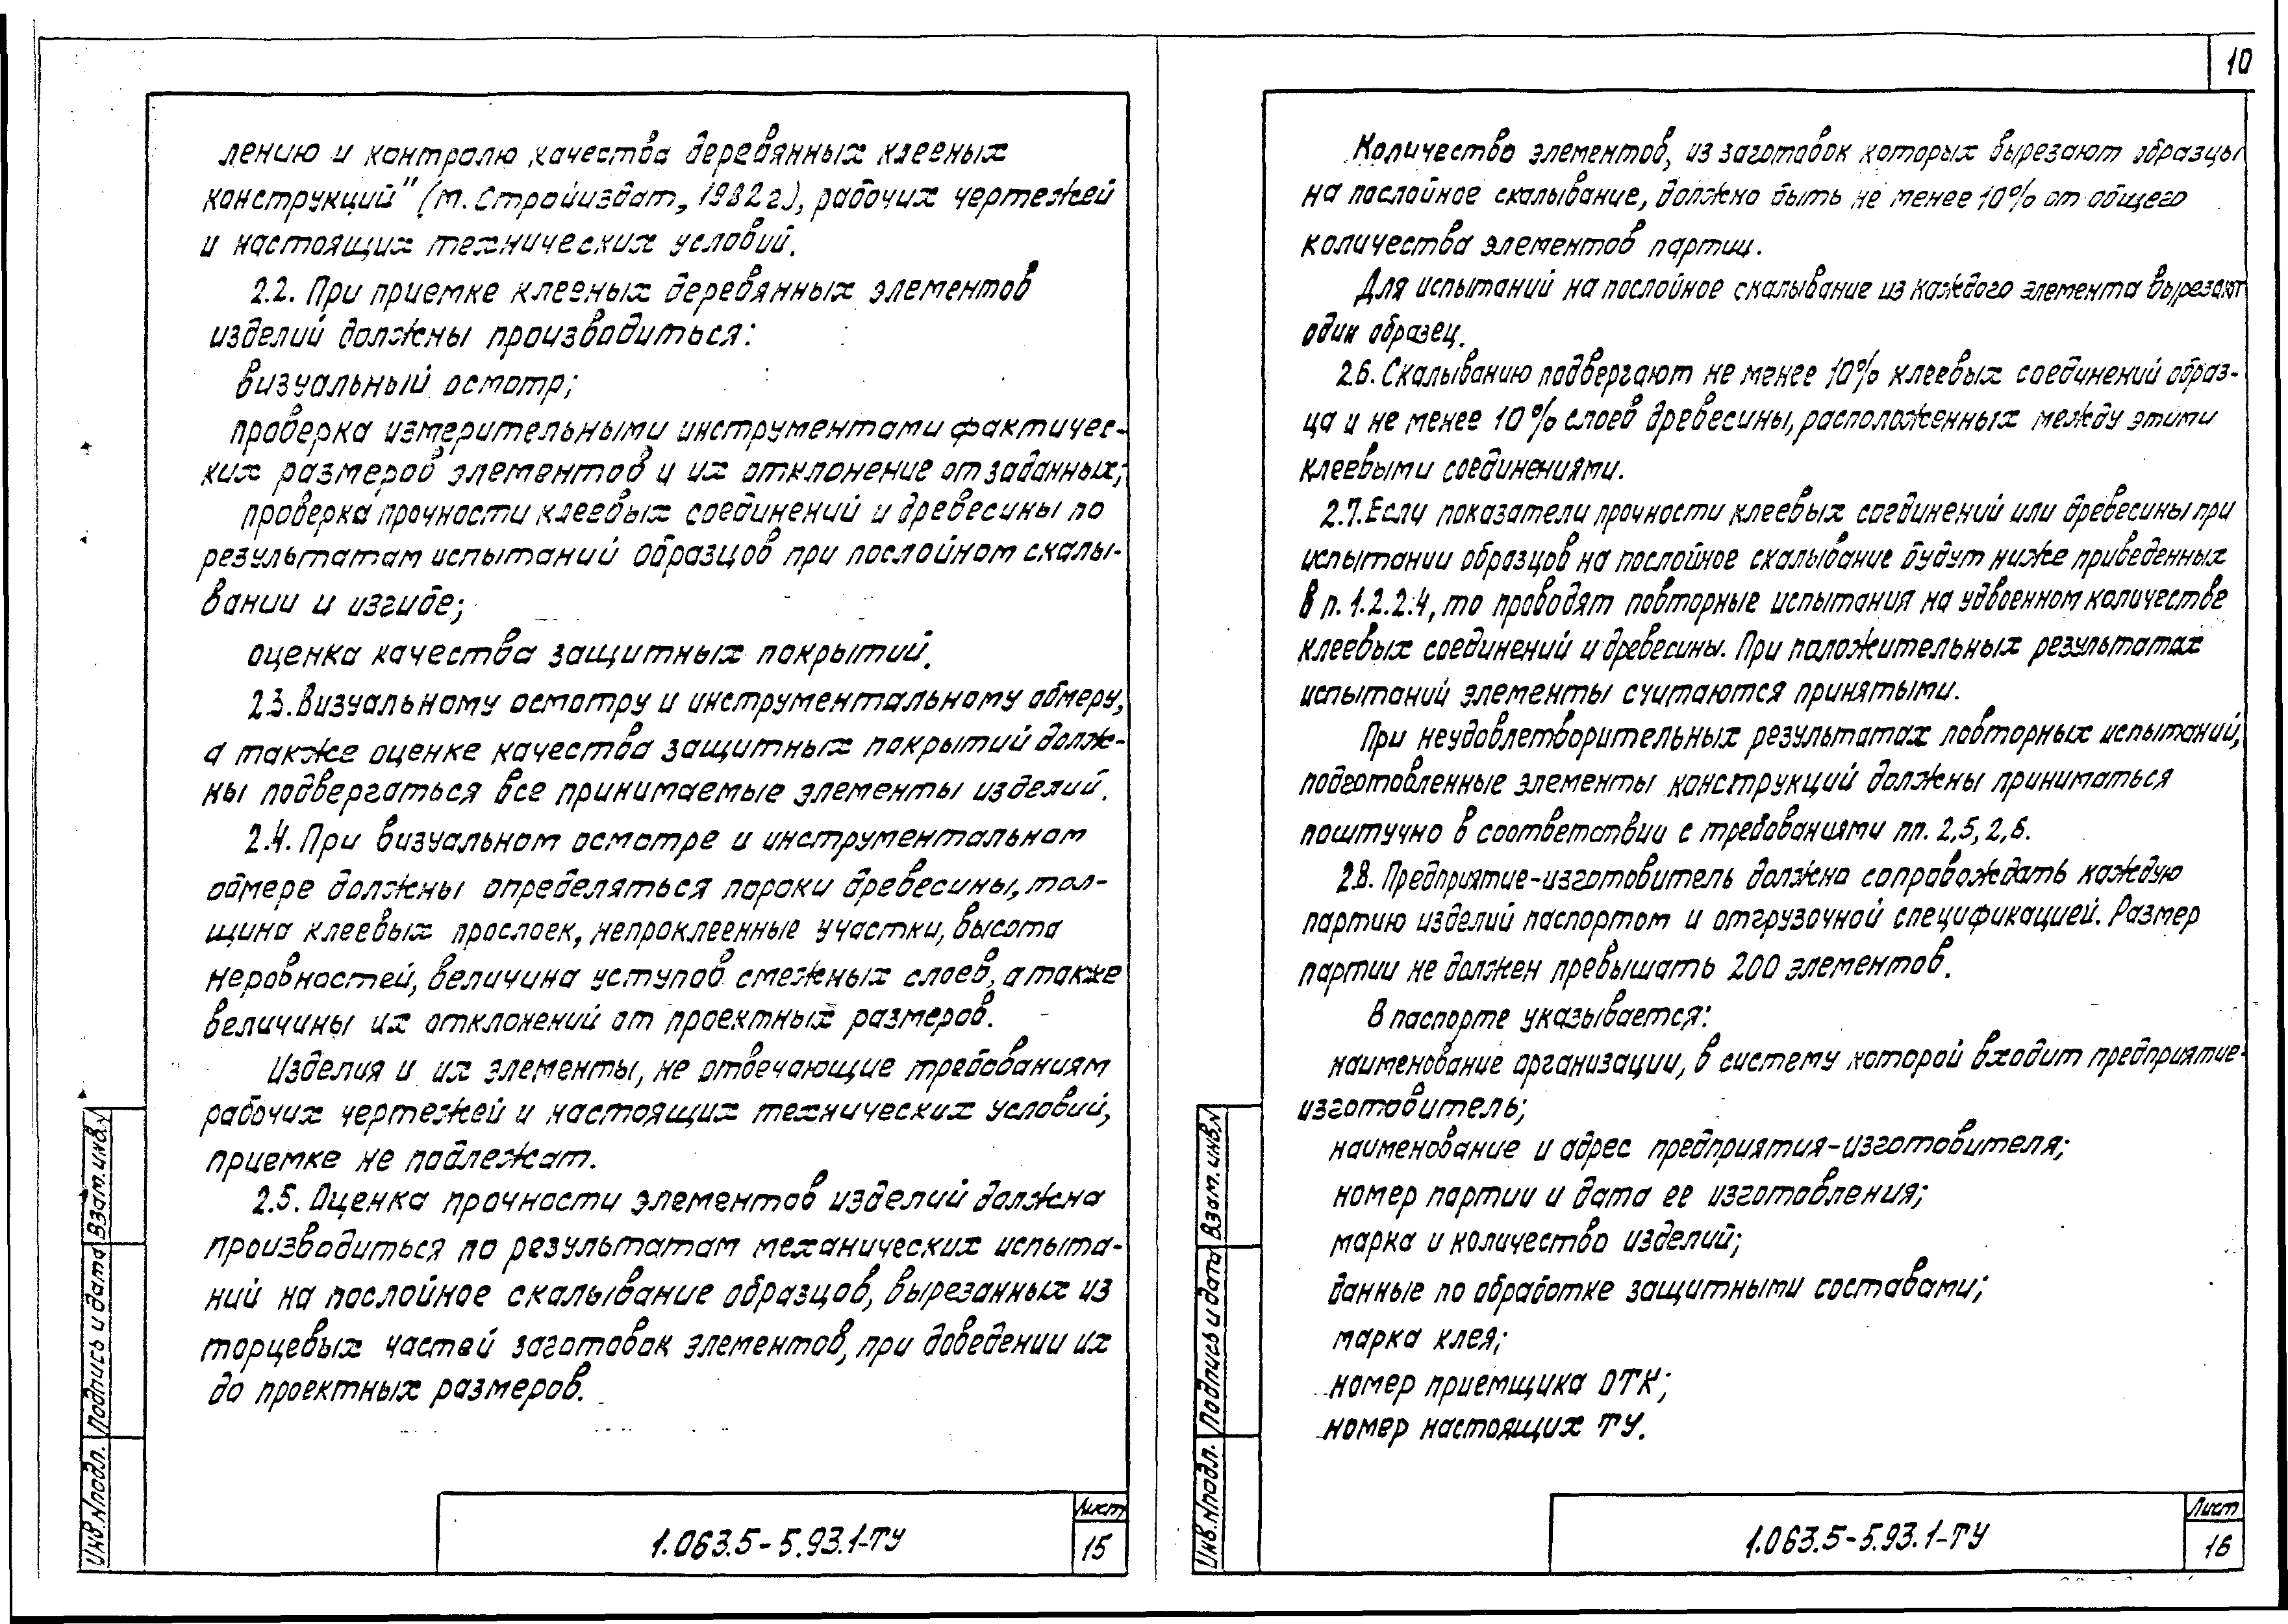 лению и контролю качества деревянных клееных
конструкций" (м. Стройиздат, 1982г.), рабочих чертежей
и настоящих технических условий.
2.2. При приемке клееных деревянных элементов
изделий должны производиться:
визуальный осмотр;
проверка измерительными инструментами фактичес-
ких размеров элементов и их отклонение от заданных;
проверка прочности клеевых соединений и древесины по
результатам испытаний образцов при послойном скалы-
вании и изгибе;
оценка качества защитных покрытий.
2.3. Визуальному осмотру и инструментальному обмеру,
а также оценке качества защитных покрытий долж-
ны подвергаться все принимаемые элементы изделий.
2.4. При визуальном осмотре и инструментальном
обмере должны определяться пороки древесины, тол-
щина клеевых прослоек, непроклеенные участки, высота
неровностей, величина уступов смежных слоев, а также
величины их отклонений от проектных размеров.
Изделия и их элементы, не отвечающие требованиям
рабочих чертежей и настоящих технических условий,
приемке не подлежат.
2.5. Оценка прочности элементов изделий должна
производиться по результатам механических испыта-
ний на послойное скалывание образцов, вырезанных из
торцевых частей заготовок элементов, при доведении их
до проектных размеров.
Инв.N/подл. Подпись и дата Взам.инв.N
1.063.5-5.93.1-ТУ
Лист
15
10
Количество элементов, из заготовок которых вырезают образцы
на послойное скалывание, должно быть не менее 10% от общего
количества элементов партии.
Для испытаний на послойное скалывание из каждого элемента вырезают
один образец.
2.6. Скалыванию подвергают не менее 10% клеевых соединений образ-
ца и не менее 10% слоев древесины, расположенных между этими
клеевыми соединениями.
2.7. Если показатели прочности клеевых соединений или древесины при
испытании образцов на послойное скалывание будут ниже приведенных
в п. 1.2.2.4, то проводят повторные испытания на удвоенном количестве
клеевых соединений и древесины. При положительных результатах
испытаний элементы считаются принятыми.
При неудовлетворительных результатах повторных испытаний,
подготовленные элементы конструкций должны приниматься
поштучно в соответствии с требованиями пп. 2,5, 2,6.
2.8. Предприятие-изготовитель должно сопровождать каждую
партию изделий паспортом и отгрузочной спецификацией. Размер
партии не должен превышать 200 элементов.
В паспорте указывается:
наименование организации, в систему которой входит предприятие-
изготовитель;
наименование и адрес предприятия-изготовителя;
номер партии и дата ее изготовления;
марка и количество изделий;
данные по обработке защитными составами;
марка клея;
номер приемщика ОТК;
номер настоящих ТУ.
Инв.N/подл. Подпись и дата Взам.инв.N
1.063.5-5.93.1-ТУ
Лист
16